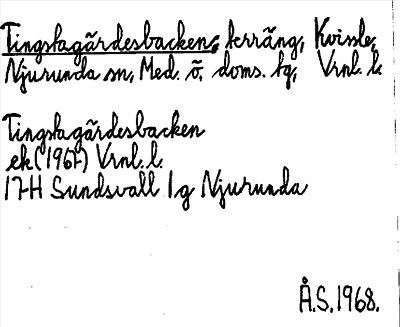 Tingstagärdesbacken, terräng, Kvissle,
Njurunda sn, Med. ö. doms. tg, Vrnl. l.
Tingstagärdesbacken
ek (1967) Vrnl. l.
17H Sundsvall 1g Njurunda
Å.S. 1968.